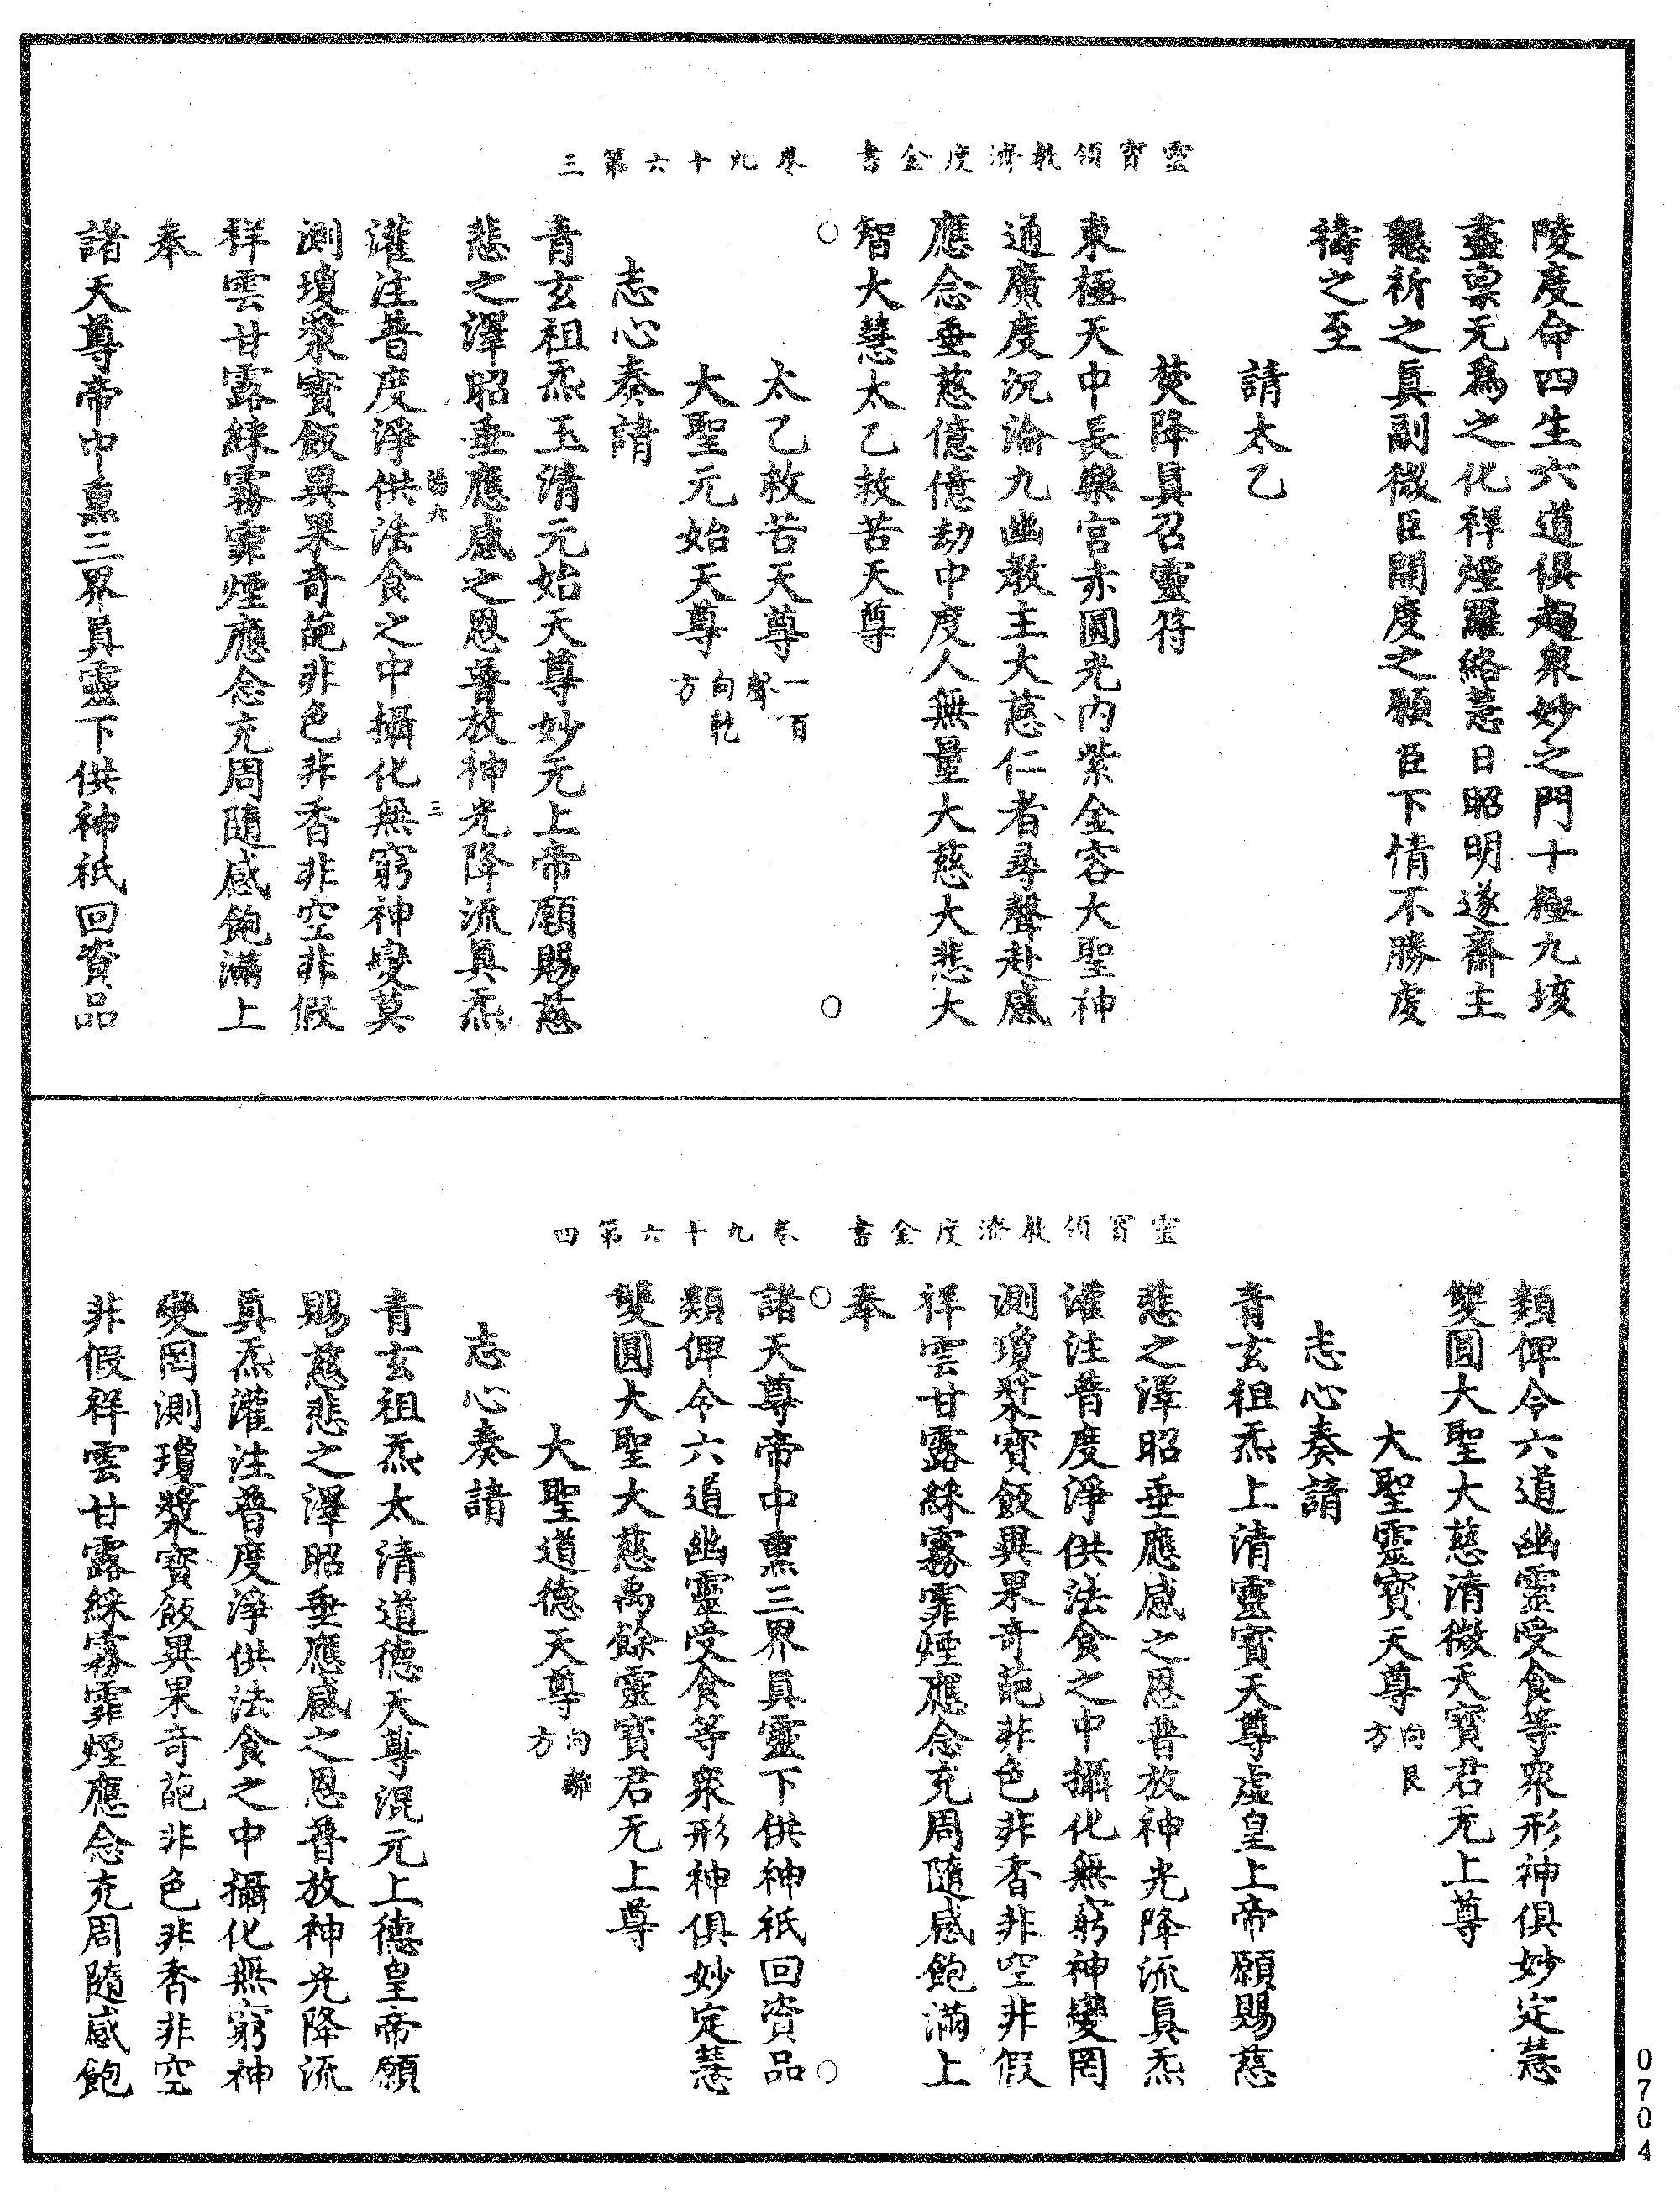 靈寳領教濟度金書 卷九十六第三
陵度命四生六道俱趨衆妙之門十極九垓
盡禀元爲之化祥煙羅絡慧日昭明遂齋主
懇祈之眞副微臣開度之願臣下情不勝虔
禱之至
請太乙
焚降眞召靈符
東極天中長樂宫赤圓光内紫金容大聖神
通廣度沉淪九幽教主大慈仁者尋聲赴感
應念垂慈億億劫中度人無量大慈大悲大
智大慧太乙救苦天尊
太乙救苦天尊一百聲
大聖元始天尊向乾方
志心奏請
青玄祖炁玉清元始天尊妙无上帝願賜慈
悲之澤昭垂應感之恩普放神光降流眞炁
灌注普度淨供法食之中攝化無窮神變莫
測瓊漿寳飯異果奇葩非色非香非空非假
祥雲甘露綵霧霏煙應念充周隨感飽滿上
奉
諸天尊帝中熏三界眞靈下供神祇回資品
靈寳領教濟度金書 卷九十六第四
類俾令六道幽靈受食等衆形神俱妙定慧
雙圓大聖大慈清微天寳君无上尊
大聖靈寳天尊向艮方
志心奏請
青玄祖炁上清靈寳天尊虛皇上帝願賜慈
悲之澤昭垂應感之恩普放神光降流眞炁
灌注普度淨供法食之中攝化無窮神變罔
測瓊漿寳飯異果奇葩非色非香非空非假
祥雲甘露綵霧霏煙應念充周隨感飽滿上
奉
諸天尊帝中熏三界眞靈下供神祇回資品
類俾令六道幽靈受食等衆形神俱妙定慧
雙圓大聖大慈禹餘靈寳君无上尊
大聖道德天尊向離方
志心奏請
青玄祖炁太清道德天尊混元上德皇帝願
賜慈悲之澤昭垂應感之恩普放神光降流
眞炁灌注普度淨供法食之中攝化無窮神
變罔測瓊漿寳飯異果奇葩非色非香非空
非假祥雲甘露綵霧霏煙應念充周隨感飽
0704